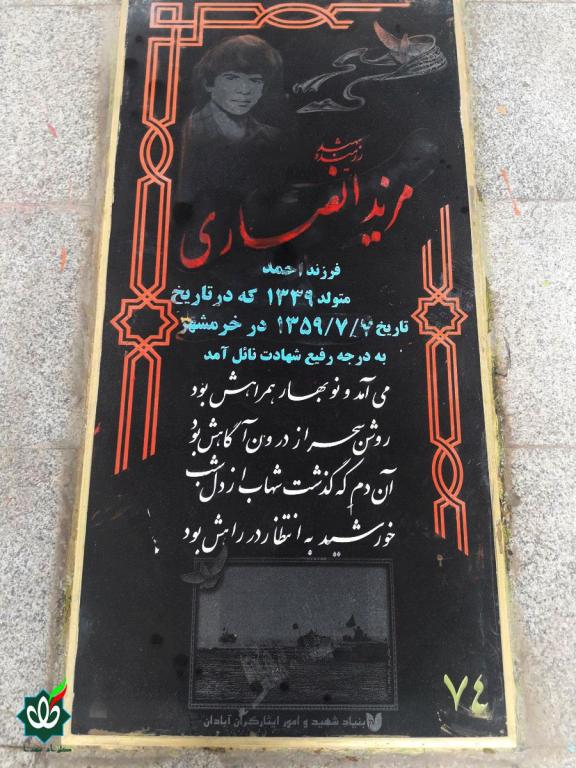 رزمنده شهید
مرید انصاری
فرزند احمد
متولد ۱۳۴۹ که در تاریخ
تاریخ ۱۳۵۹/۷/۷ در خرمشهر
به درجه رفیع شهادت نائل آمد
می آمد و نوبهار همراهش بود
روشن سحر از درون آگاهش بود
آن دم که گذشت شهاب از دل شب
خورشید به انتظار در راهش بود
بنیاد شهید و امور ایثارگران آبادان
۷٤